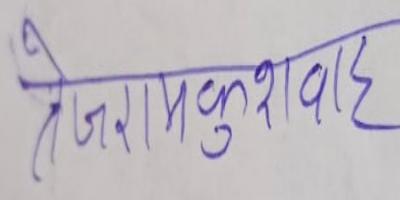 तेजरामकुशवाह